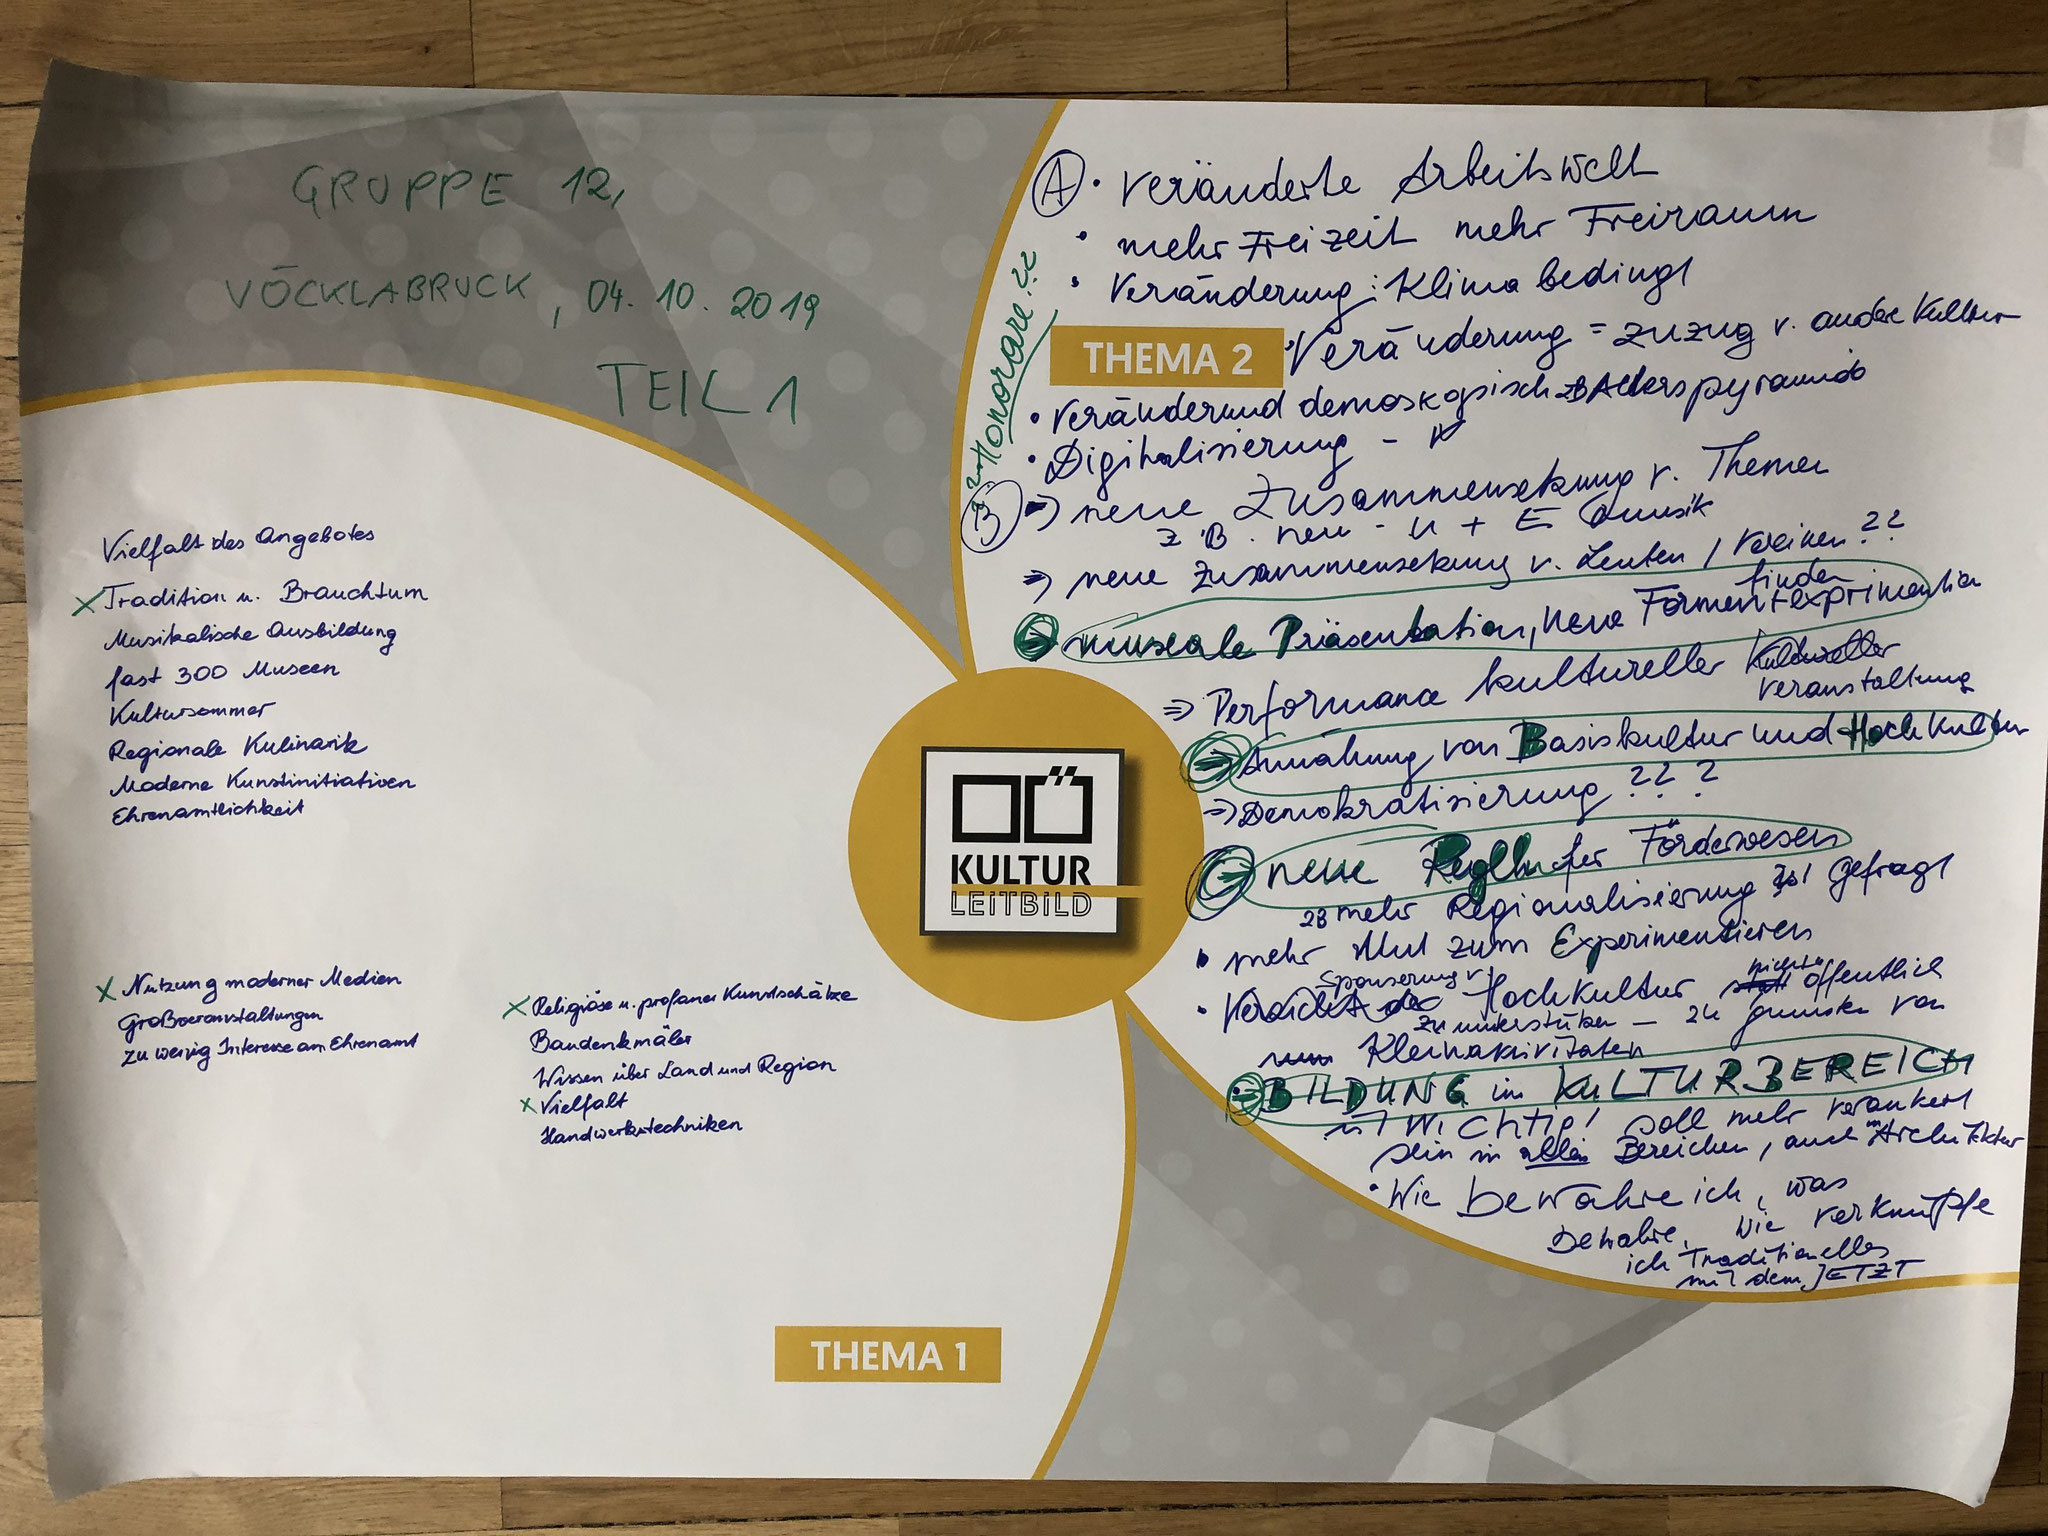 GRUPPE 12,
VÖCKLABRUCK, 04.10.2019
TEIL 1
Vielfalt des Angebotes
x Tradition u. Brauchtum
Musikalische Ausbildung
fast 300 Museen
Kultursommer
Regionale Kulinarik
Moderne Kunstinitiativen
Ehrenamtlichkeit
x Nutzung moderner Medien
Großveranstaltungen
zu wenig Interesse am Ehrenamt
x Religiöse u. profaner Kunstschätze
Baudenkmäler
Wissen über Land und Region
x Vielfalt
Handwerkstechniken
THEMA 1
OÖ
KULTUR
LEITBILD
Honorare.??
A • veränderte Arbeitswelt
• mehr Freizeit mehr Freiraum
• Veränderung: Klima bedingt
THEMA 2
• Veränderung = Zuzug v. andere Kultur
• Veränderund demoskopisch zB Alterspyramide
• Digitalisierung -
B => neue Zusammensetzung v. Themen
z.B. neu - U + E Musik
=> neue Zusammensetzung v. Leuten / Vereinen ??
=> museale Präsentation, neue Formen finden + exprimentien
=> Performance kultureller
Veranstaltung
=> Annähung von Basiskultur und Hochkultur
=> Demokratisierung ???
C => neue Fördewesen
zB mehr Regionalisierung ist gefragt
• mehr Mut zum Experimentieren
• Sponserung v. Hochkultur nicht öffentlich
zu unterstützen - zu gunsten von
Kleinaktivitäten
• BILDUNG im KULTURBEREICH
ist Wichtig! soll mehr verankert
sein in allen Bereichen, auch in Architektur
• Wie bewahre ich, was
bewahre, wie verknüpfe
ich Traditionelles
mit dem JETZT